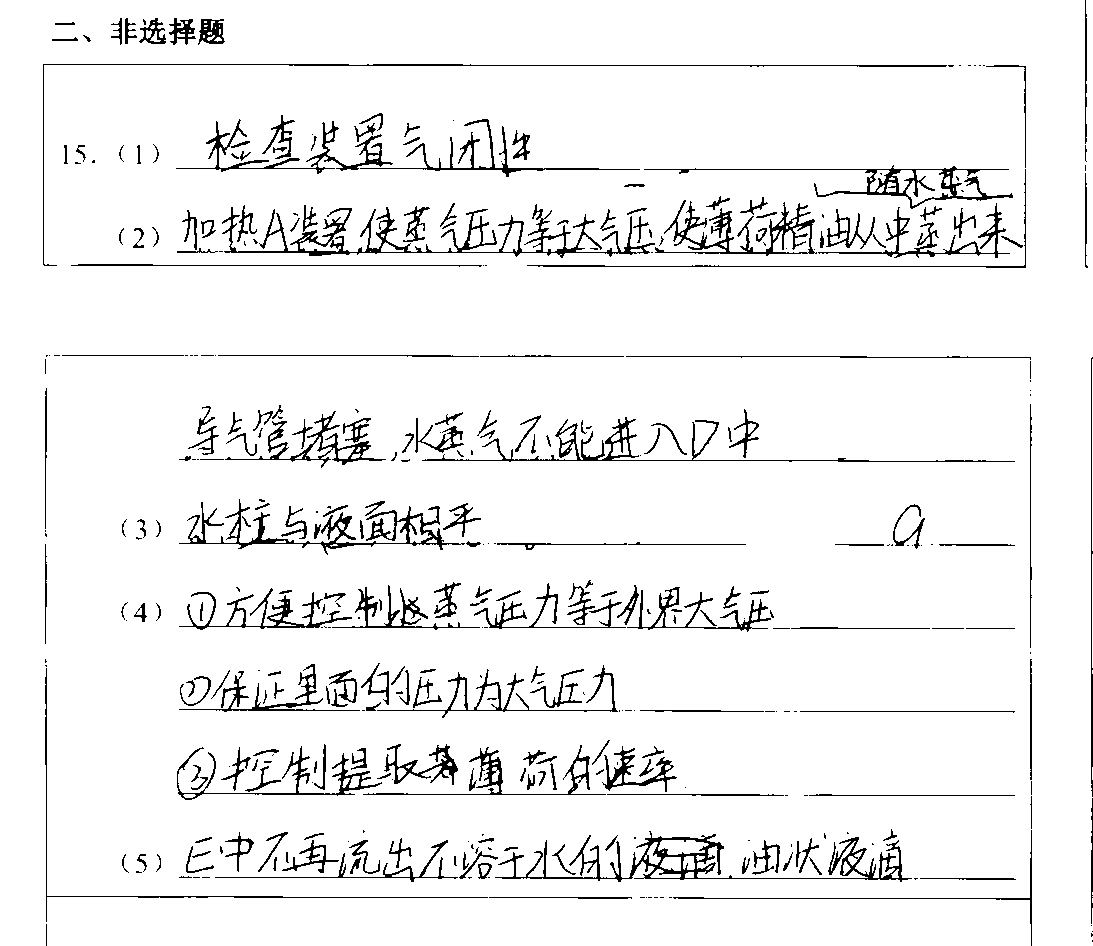 二、非选择题
15.（1）检查装置气闭性
随水蒸气
（2）加热A装置,使蒸气压力等于大气压,使薄荷精油从中蒸出来
导气管堵塞,水蒸气不能进入D中
（3）水柱与液面相平 a
（4）①方便控制蒸气压力等于外界大气压
②保证里面的压力为大气压力
③控制提取薄荷的速率
（5）E中不再流出不溶于水的油状液滴